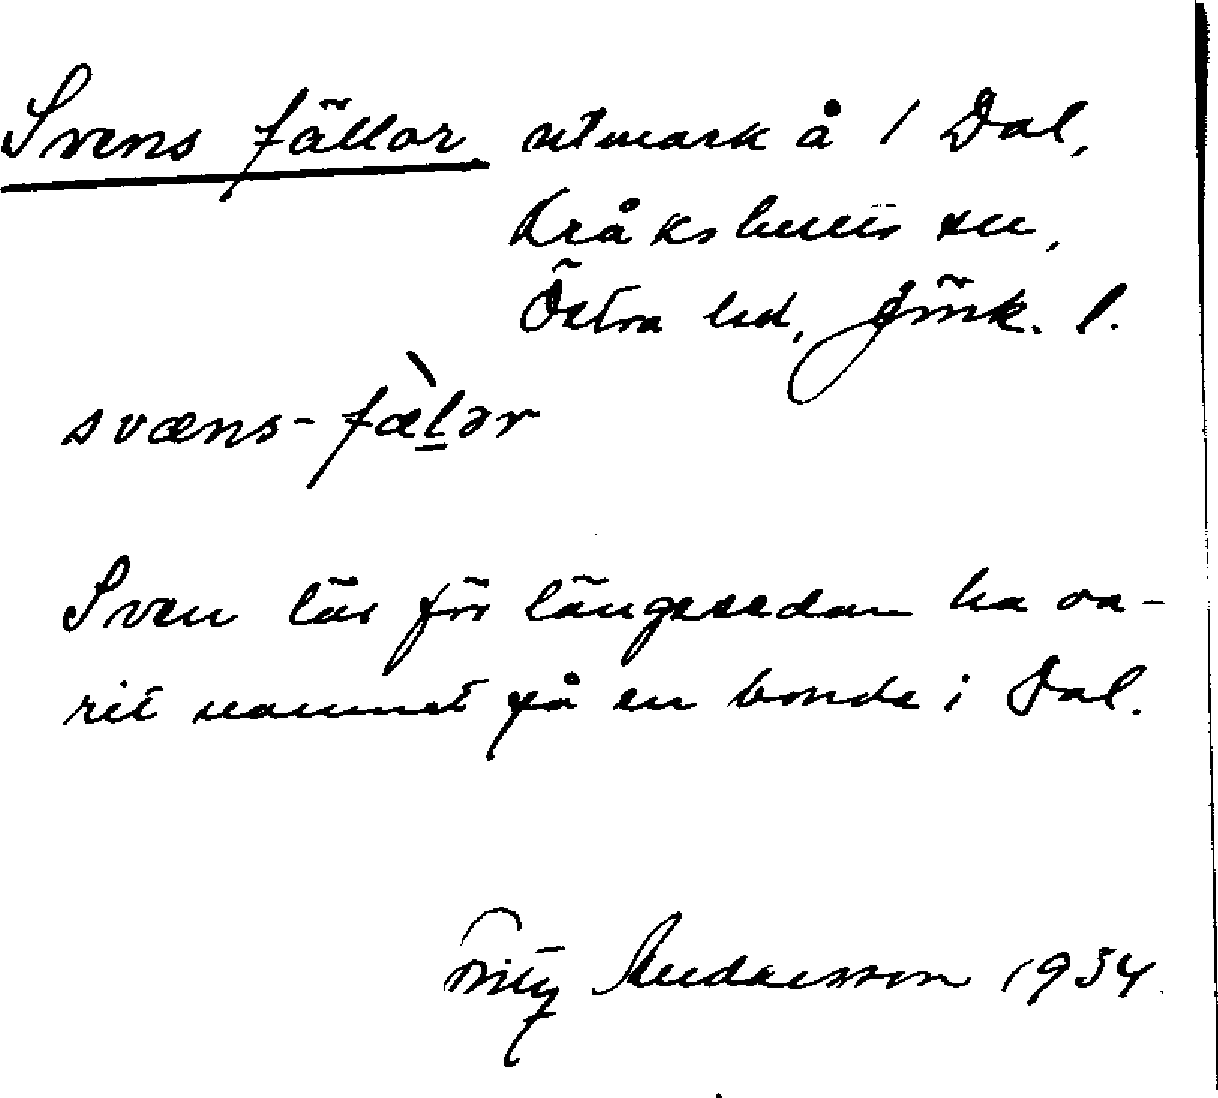 Svens fällor utmark å 1 Dal,
Kråkshults sn,
Östra hd, Jönk. l.
svæns-fæ̀lər
Sven lär för längesedan ha va-
rit namnet på en bonde i Dal.
Fritz Andersson 1934